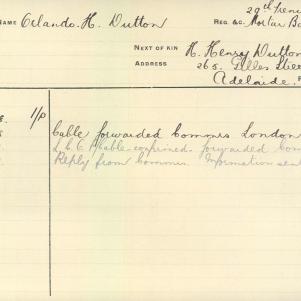 29th
NAME Orlando. H. Dutton REG. &C. Mortar Ba
NEXT OF KIN H. Henry Dutton
ADDRESS 265. Gilles Stree
Adelaide.
1/P Cable forwarded Commis London
Cable confirmed forwarded Com
Reply from Commis. Information sent